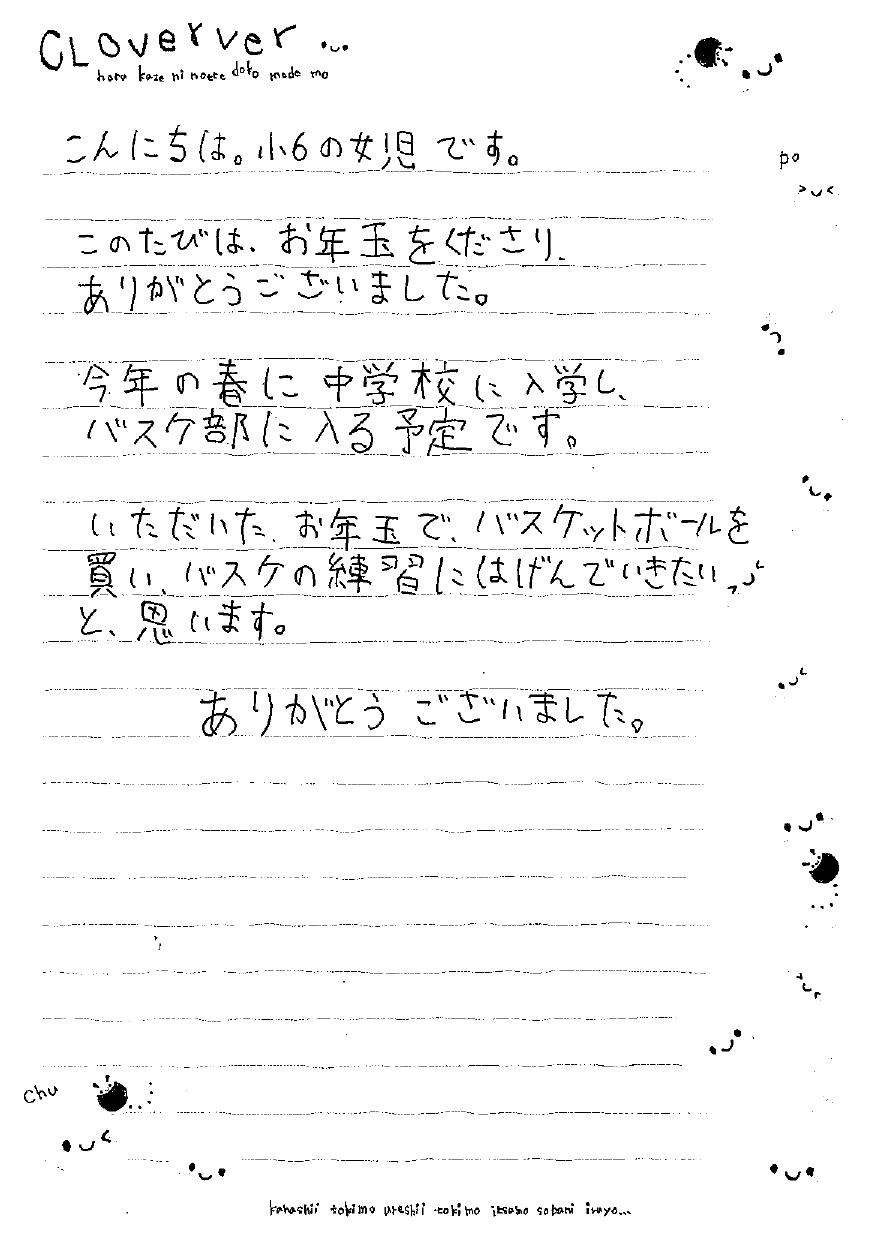 CLoverver
haru kaze ni nosete doko made mo
こんにちは。小6の女児です。
po
このたびは、お年玉をくださり、
ありがとうございました。
今年の春に中学校に入学し、
バスケ部に入る予定です。
いただいた、お年玉で、バスケットボールを
買い、バスケの練習にはげんでいきたい
と、思います。
ありがとうございました。
chu
kanashii tokimo ureshii tokimo itsumo sobani iruyo...